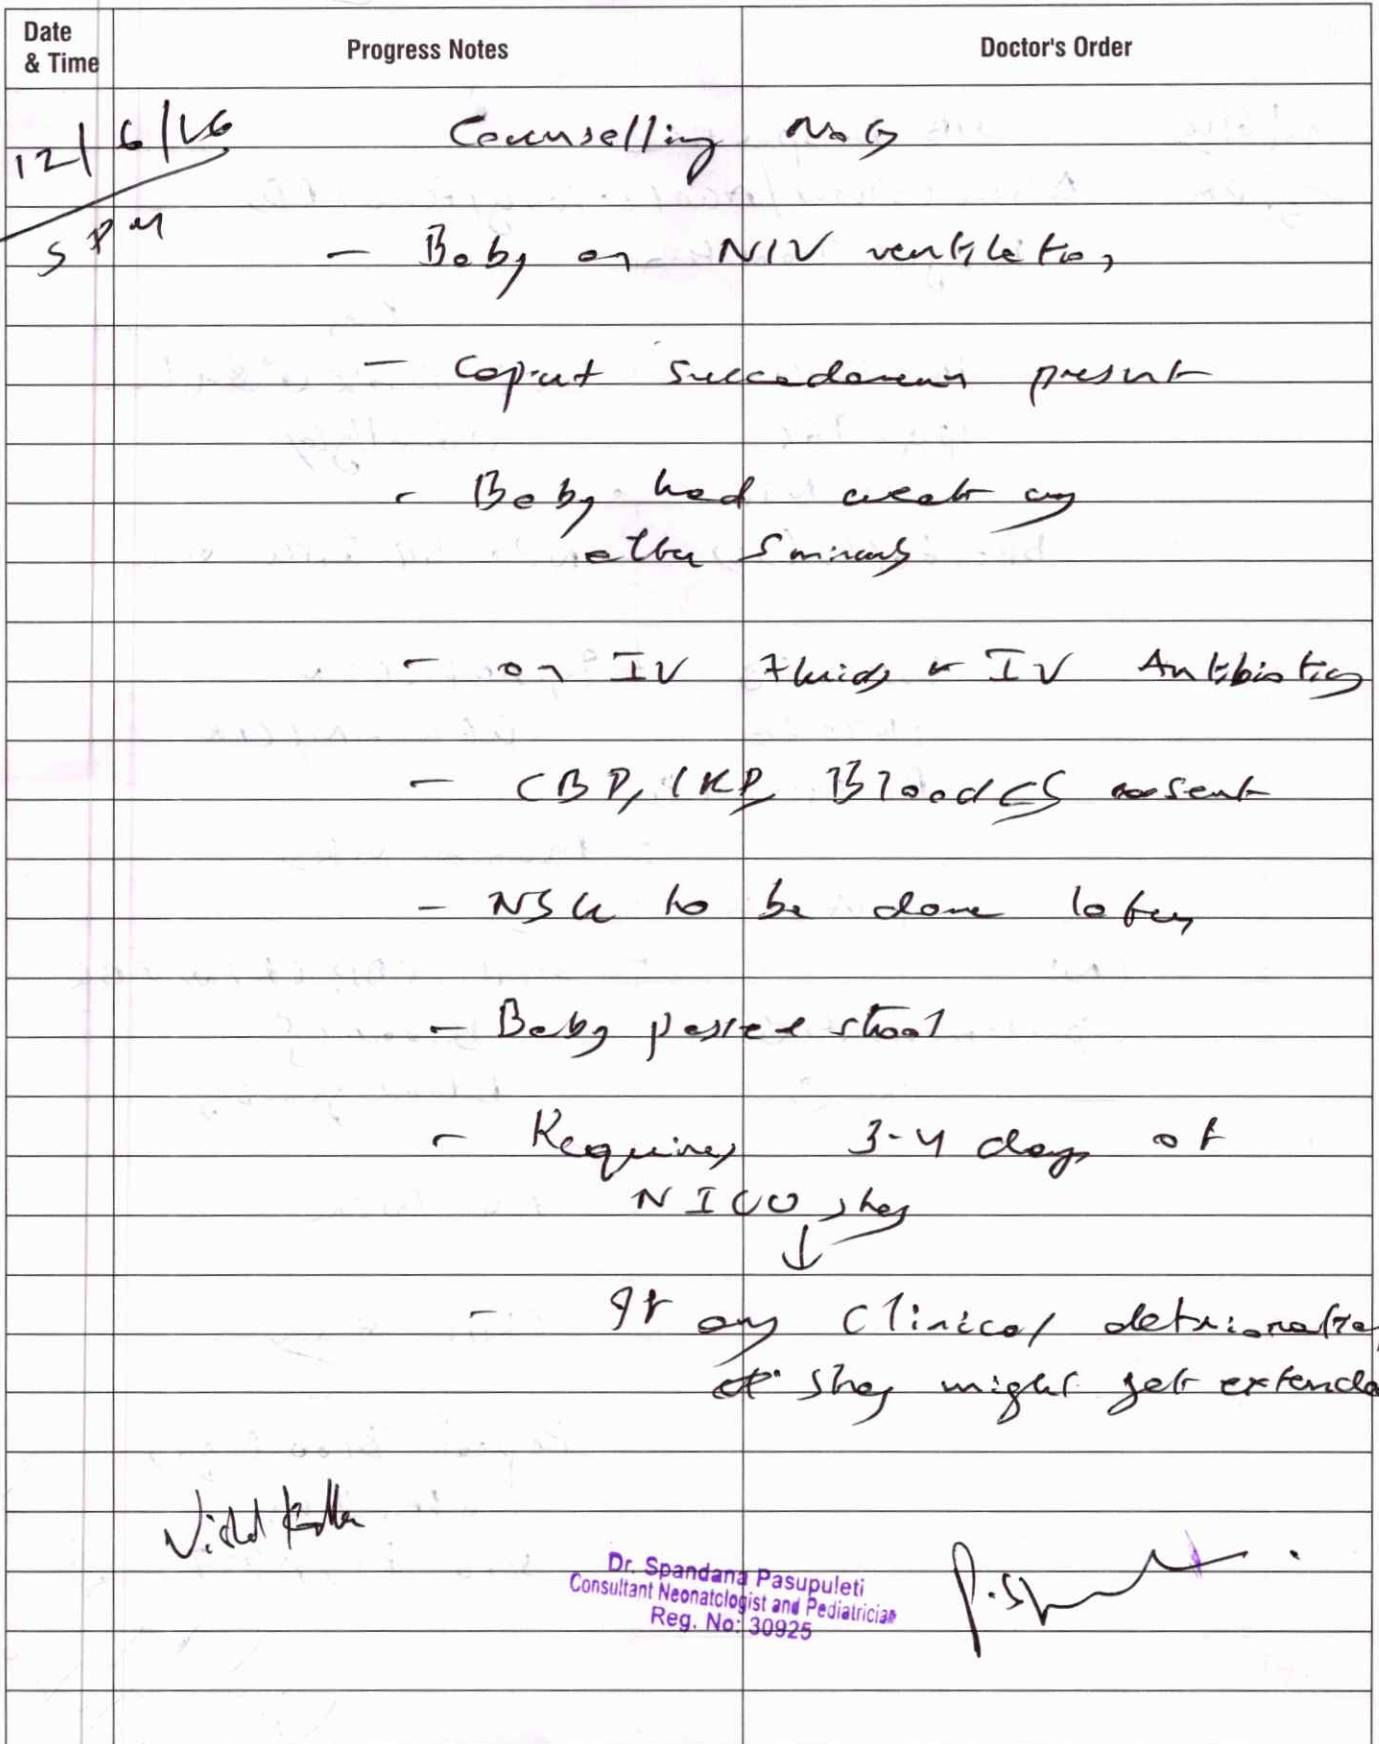 Date & Time Progress Notes Doctor's Order
12/6/26 Counselling Notes
5 PM
- Baby on NIV ventilation
- Caput succedaneum present
- Baby had weak cry
after 5 minutes
- on IV Fluids & IV Antibiotics
- CBP, CRP, Blood CS sent
- NSG to be done later
- Baby passed stool
- Requires 3-4 days of
NICU stay
↓
- If any Clinical deterioration
stay might get extended
Dr. Spandana Pasupuleti
Consultant Neonatologist and Pediatrician
Reg. No: 30925